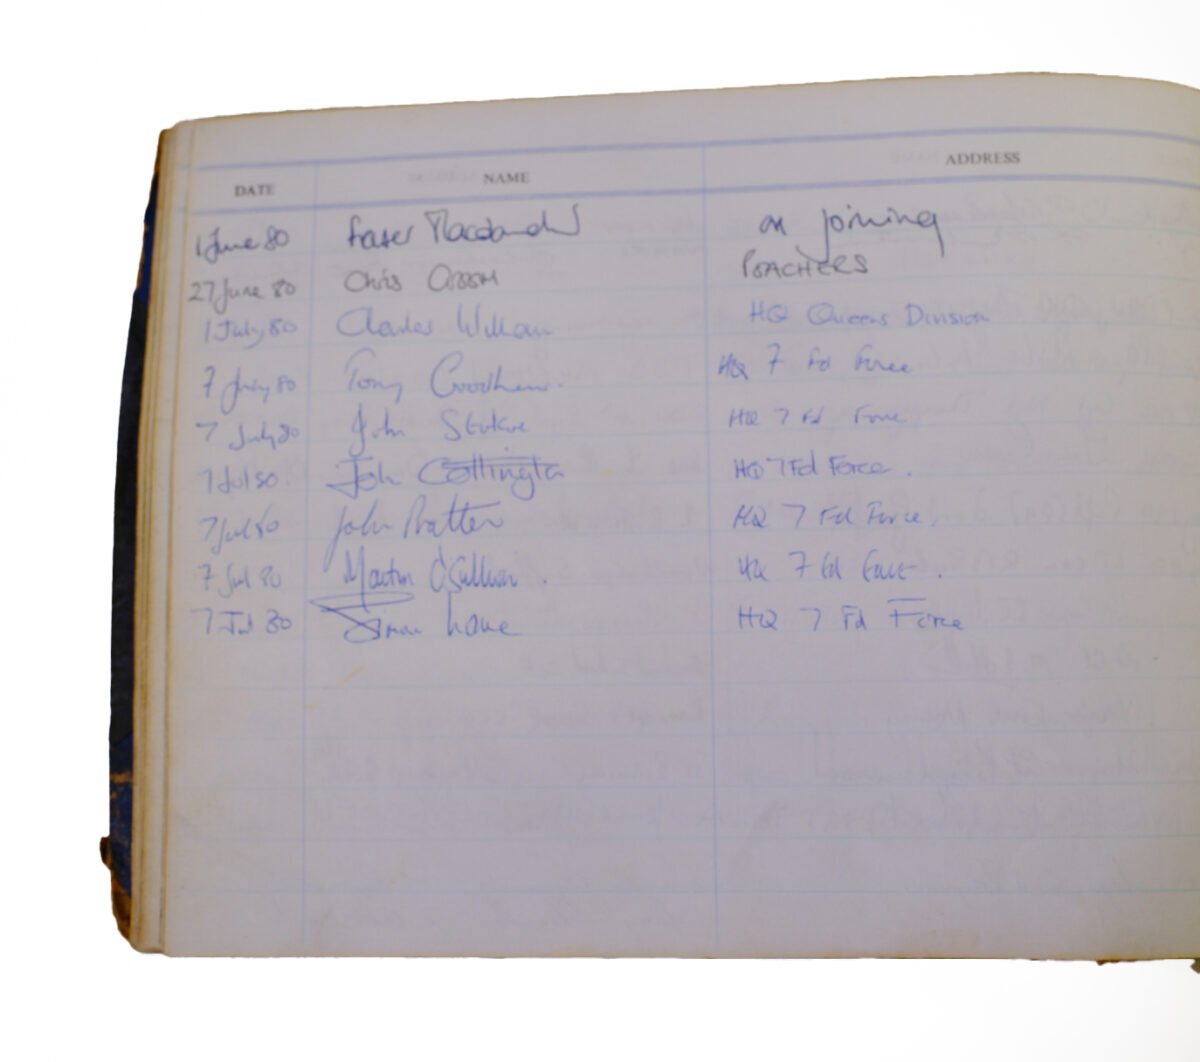 DATE NAME ADDRESS
1 June 80 on joining
27 June 80 Chris POACHERS
1 July 80 Charles HQ Queens Division
7 July 80 Tony HQ 7 Fd Force
7 July 80 John HQ 7 Fd Force
7 Jul 80 John Cottington HQ 7 Fd Force.
7 Jul 80 John Pratten HQ 7 Fd Force.
7 Jul 80 Martin O'Sullivan. HQ 7 Fd Force.
7 Jul 80 Simon Lowe HQ 7 Fd Force